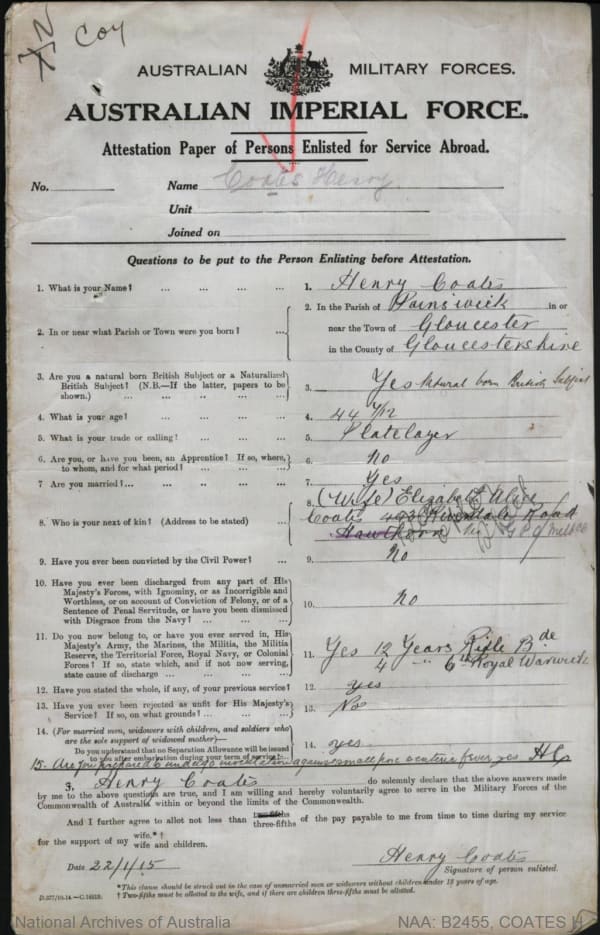 Coy
AUSTRALIAN MILITARY FORCES.
AUSTRALIAN IMPERIAL FORCE.
Attestation Paper of Persons Enlisted for Service Abroad.
No. Name Coates Henry
Unit
Joined on
Questions to be put to the Person Enlisting before Attestation.
1. What is your Name? ... ... ... ... 1. Henry Coates
2. In or near what Parish or Town were you born? ... 2. In the Parish of Painswick in or
near the Town of Gloucester
in the County of Gloucestershire
3. Are you a natural born British Subject or a Naturalized
British Subject? (N.B.—If the latter, papers to be
shown.) ... ... ... ... 3. Yes Natural born British Subject
4. What is your age? ... ... ... ... 4. 44 7/12
5. What is your trade or calling? ... ... ... 5. Platelayer
6. Are you, or have you been, an Apprentice? If so, where,
to whom, and for what period? ... ... ... 6. No
7. Are you married?... ... ... ... 7. Yes
8. Who is your next of kin? (Address to be stated) ... 8. (Wife) Elizabeth Alice
Coates Road
Hawthorn G.P.O Melb
9. Have you ever been convicted by the Civil Power? ... 9. No
10. Have you ever been discharged from any part of His
Majesty's Forces, with Ignominy, or as Incorrigible and
Worthless, or on account of Conviction of Felony, or of a
Sentence of Penal Servitude, or have you been dismissed
with Disgrace from the Navy? ... ... ... 10. No
11. Do you now belong to, or have you ever served in, His
Majesty's Army, the Marines, the Militia, the Militia
Reserve, the Territorial Force, Royal Navy, or Colonial
Forces? If so, state which, and if not now serving,
state cause of discharge ... ... ... 11. Yes 12 Years Rifle Bde
4 " 6th Royal Warwick
12. Have you stated the whole, if any, of your previous service? 12. yes
13. Have you ever been rejected as unfit for His Majesty's
Service? If so, on what grounds? ... ... ... 13. No
14. (For married men, widowers with children, and soldiers who
are the sole support of widowed mother)—
Do you understand that no Separation Allowance will be issued
to you after embarkation during your term of service? 14. yes
15. Are you prepared to undergo inoculation against small pox & enteric fever, yes HC
I, Henry Coates do solemnly declare that the above answers made
by me to the above questions are true, and I am willing and hereby voluntarily agree to serve in the Military Forces of the
Commonwealth of Australia within or beyond the limits of the Commonwealth.
And I further agree to allot not less than two-fifths three-fifths of the pay payable to me from time to time during my service
for the support of my wife.*† wife and children.
Date 22/1/15 Henry Coates
Signature of person enlisted.
*This clause should be struck out in the case of unmarried men or widowers without children under 18 years of age.
† Two-fifths must be allotted to the wife, and if there are children three-fifths must be allotted.
National Archives of Australia NAA: B2455, COATES H